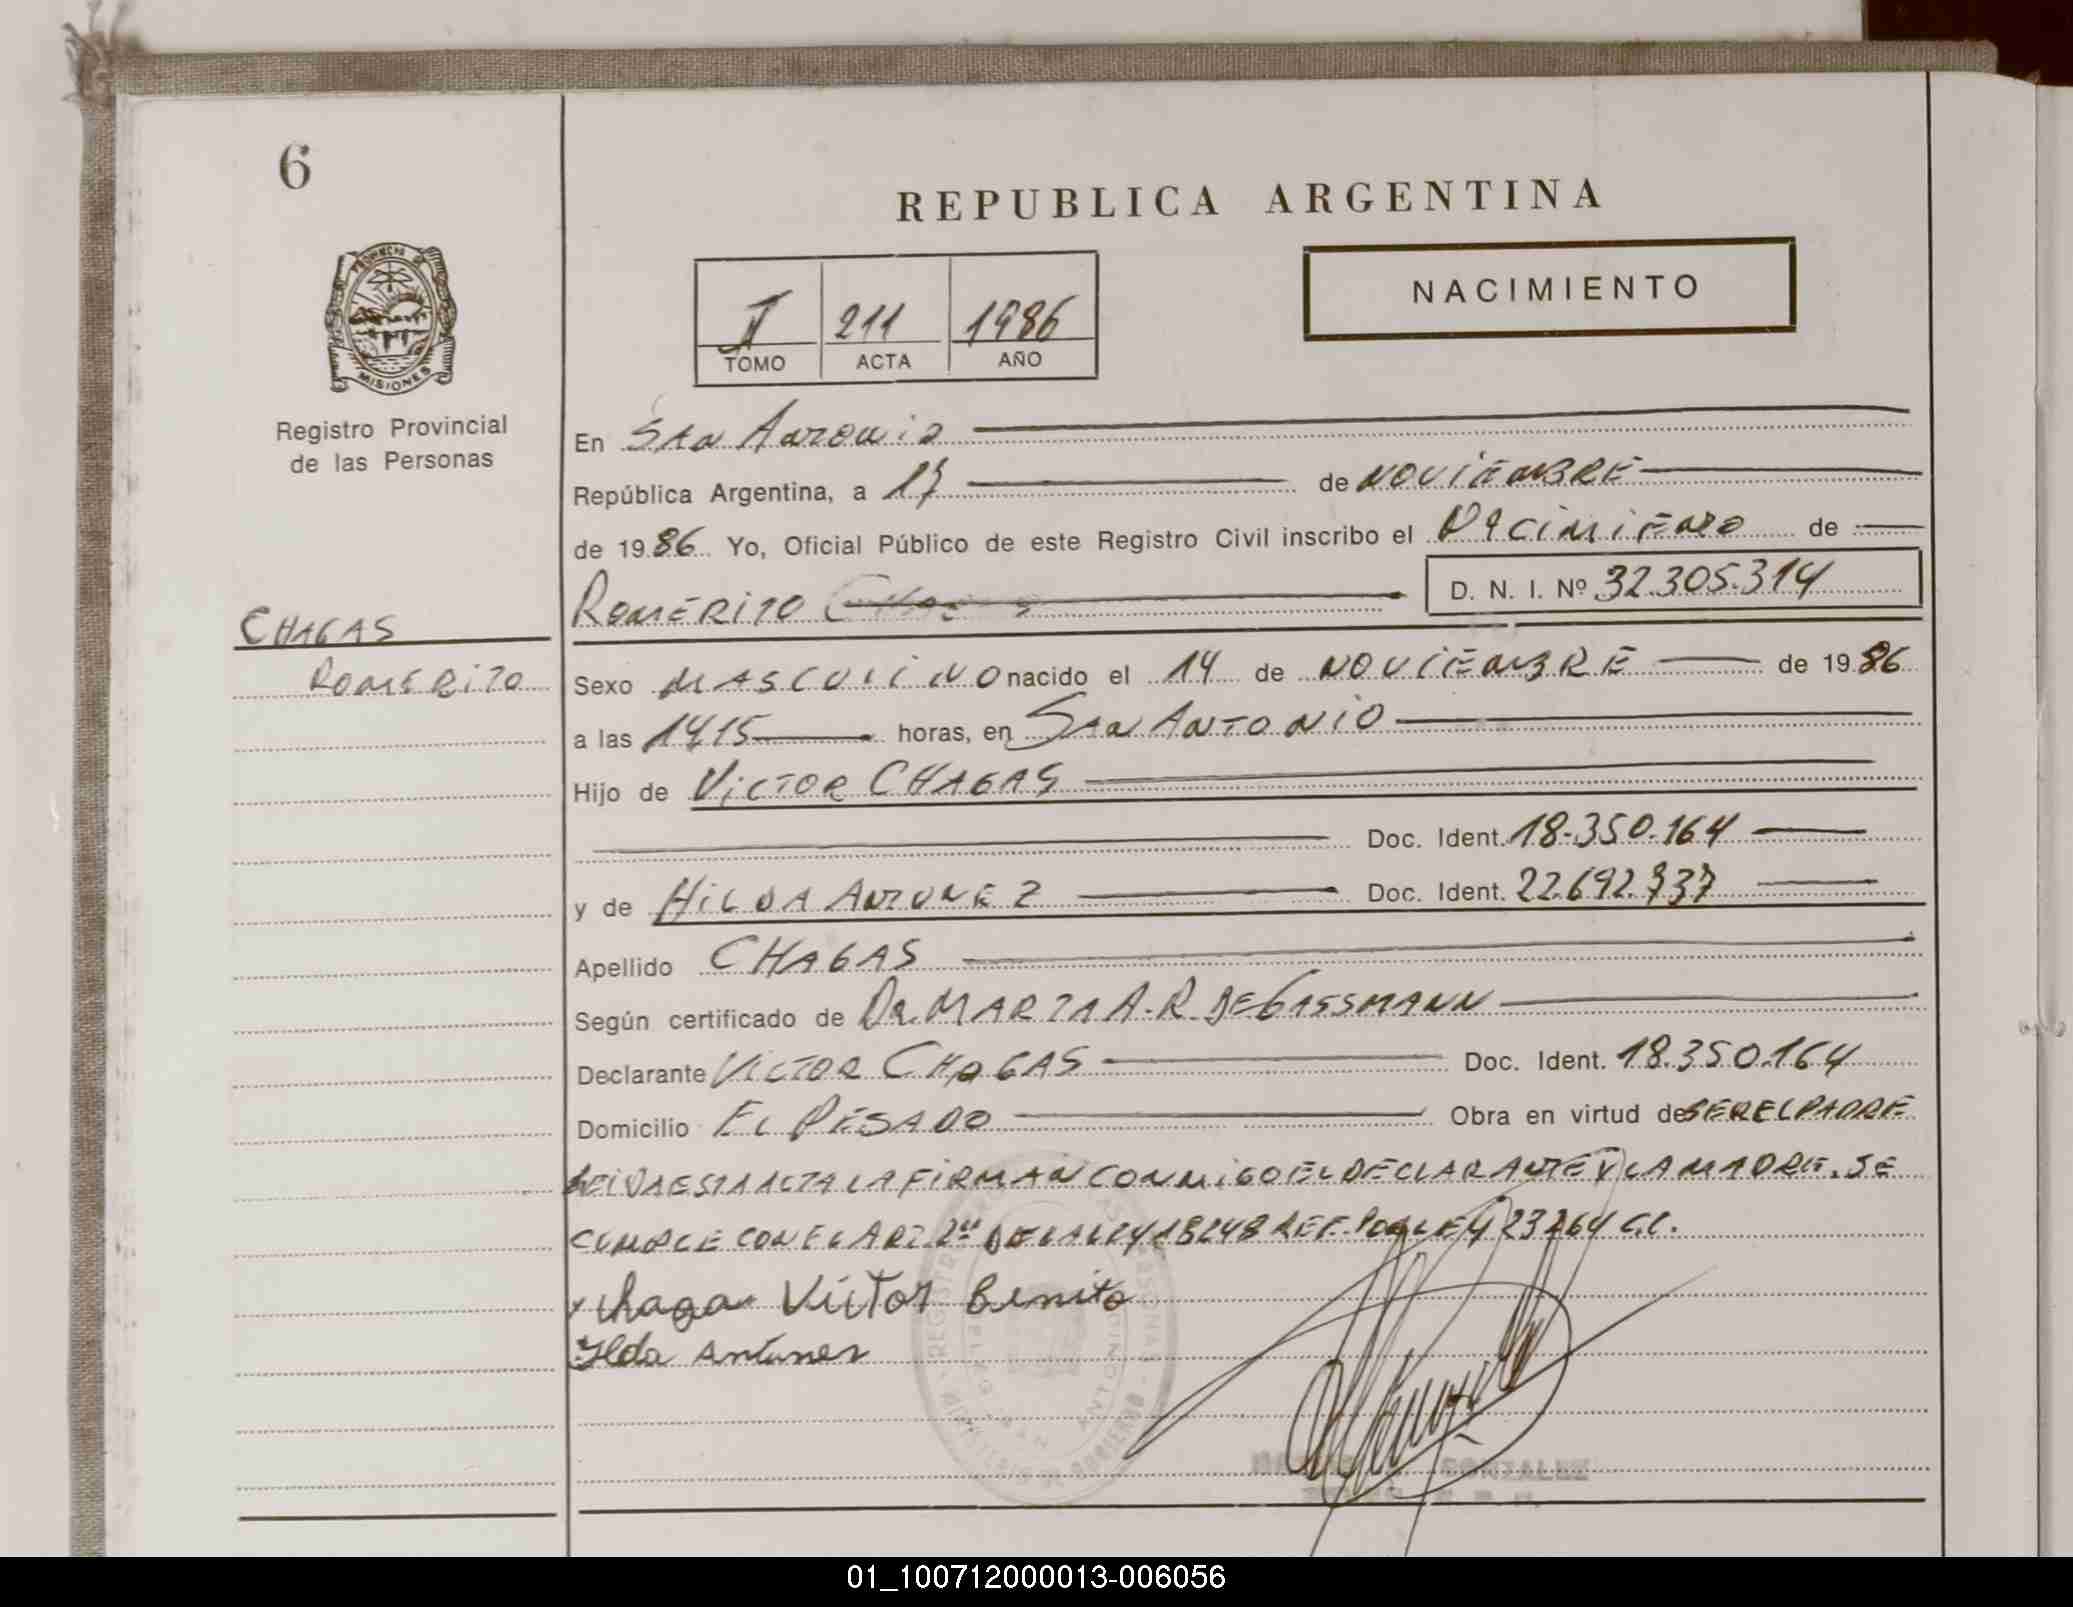 6
REPUBLICA ARGENTINA
NACIMIENTO
II 211 1986
TOMO ACTA AÑO
PROVINCIA DE
MISIONES
Registro Provincial
de las Personas
En San Antonio
República Argentina, a 17 de NOVIEMBRE
de 1986 Yo, Oficial Público de este Registro Civil inscribo el NACIMIENTO de
ROMERITO
D. N. I. Nº 32.305.314
CHAGAS
ROMERITO
Sexo MASCULINO nacido el 14 de NOVIEMBRE de 1986
a las 1415 horas, en SAN ANTONIO
Hijo de VICTOR CHAGAS
Doc. Ident. 18.350.164
y de HILDA ANTUNEZ Doc. Ident. 22.692.737
Apellido CHAGAS
Según certificado de Dra. MARTA A. R. DE GASSMANN
Declarante VICTOR CHAGAS Doc. Ident. 18.350.164
Domicilio EL PESADO Obra en virtud de SER EL PADRE
LEIDA ESTA ACTA LA FIRMAN CONMIGO EL DECLARANTE Y LA MADRE. SE
CUMPLE CON EL ART 2º DE LA LEY 18248 REF. POR LEY 23264 C.C.
x Chaga Victor Benito
Ilda Antunes
GONZALEZ
01_100712000013-006056